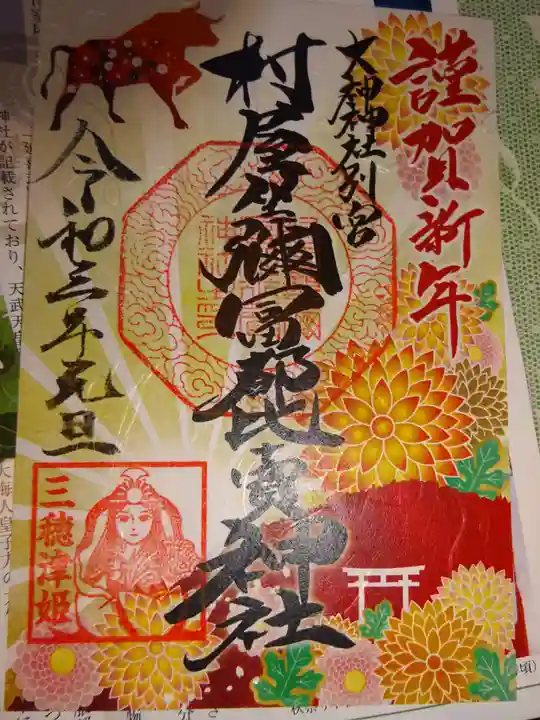 謹賀新年
大神神社別宮
村屋坐彌冨都比賣神社
令和三年元旦
三穂津姫
神社が記載されており、天武天皇